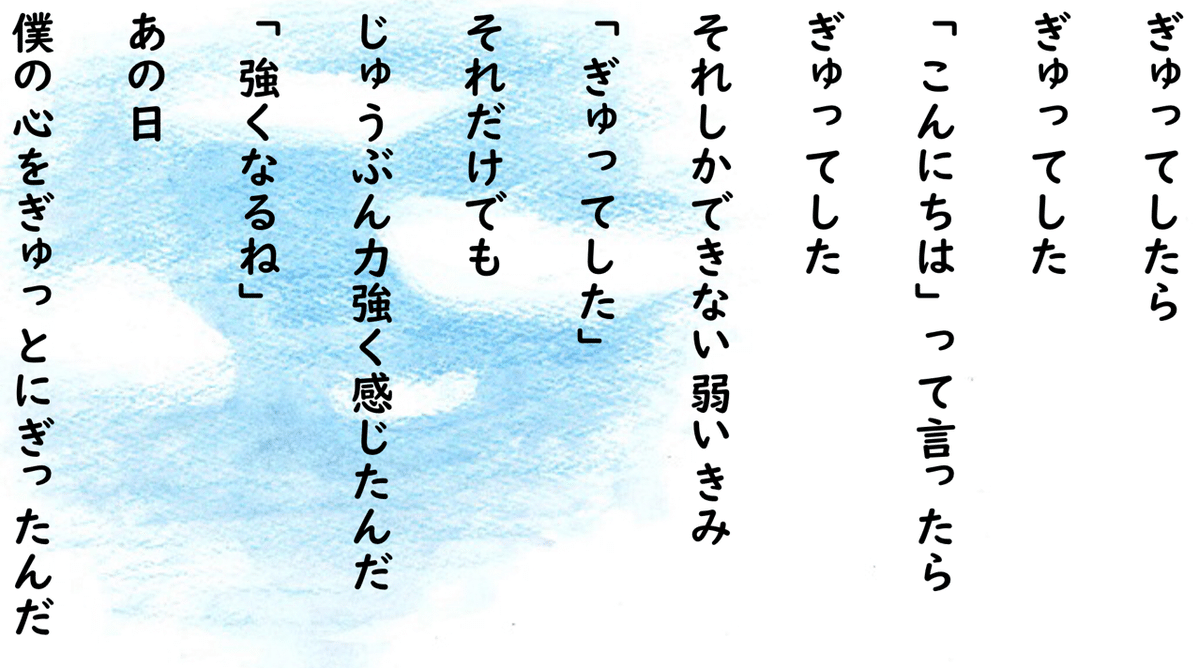 ぎゅってしたら
ぎゅってした
「こんにちは」って言ったら
ぎゅってした
それしかできない弱いきみ
「ぎゅってした」
それだけでも
じゅうぶん力強く感じたんだ
「強くなるね」
あの日
僕の心をぎゅっとにぎったんだ